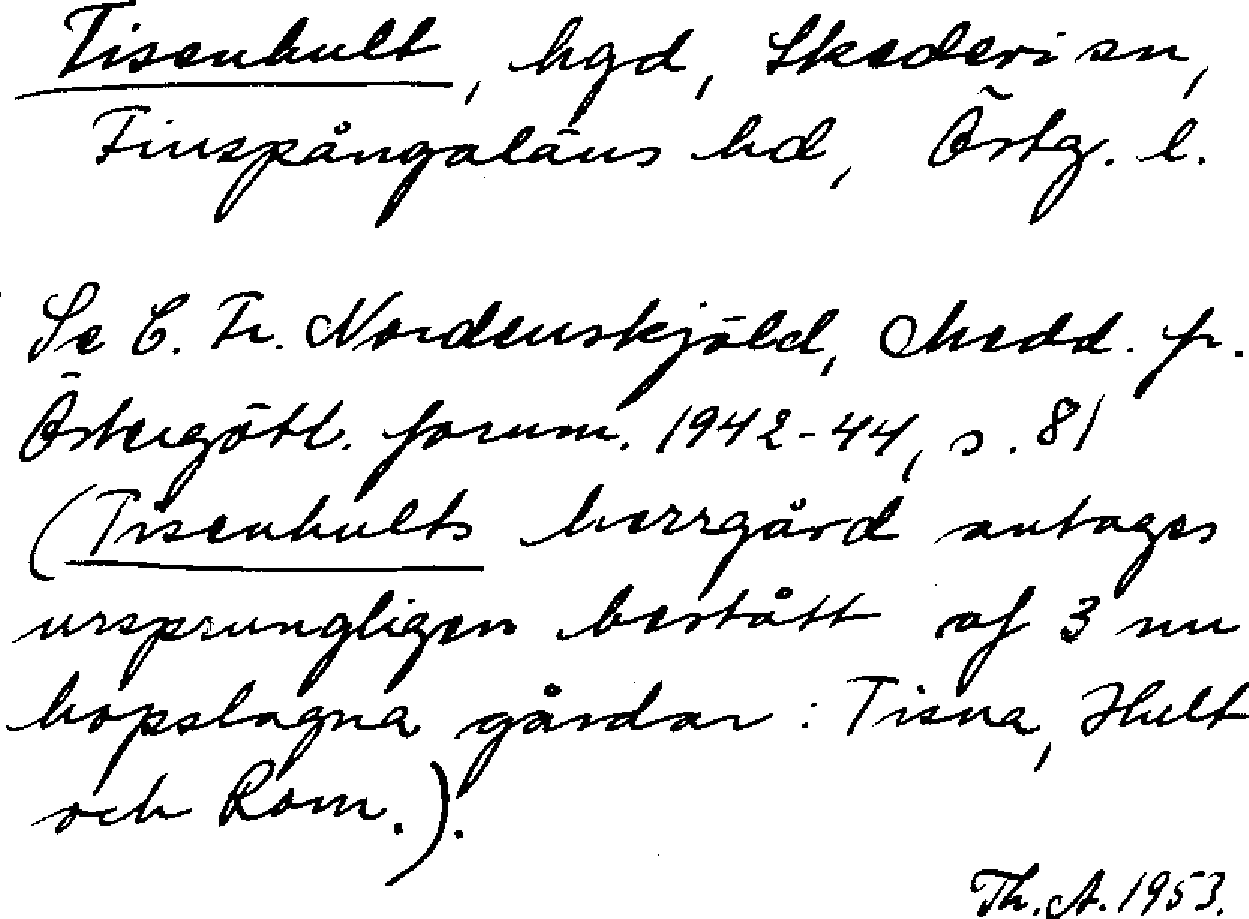 Tisenhult, hgd, Skedevi sn,
Finspångaläns hd, Östg. l.
Se C. Fr. Nordenskjöld, Medd. fr.
Östergötl. fornm. 1942-44, s. 81
(Tisenhults herrgård antages
ursprungligen bestått af 3 nu
hopslagna gårdar: Tisna, Hult
och Rom.).
Th. A. 1953.